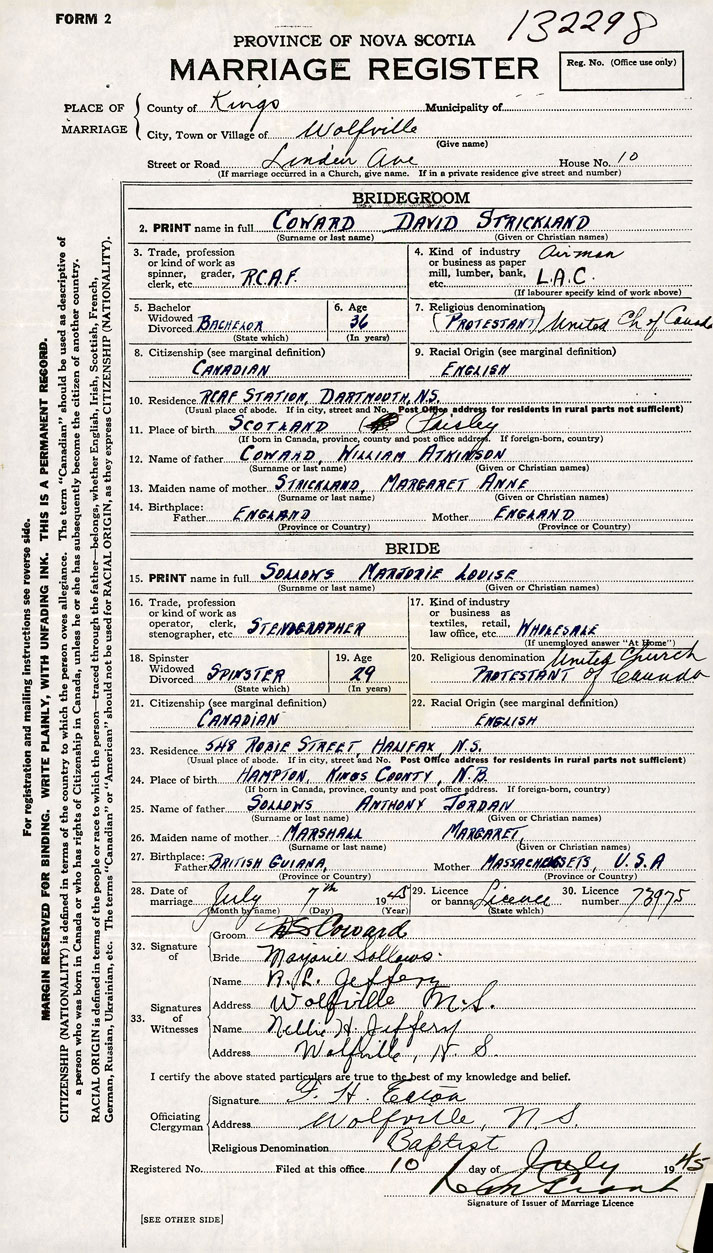 FORM 2
132298
PROVINCE OF NOVA SCOTIA
MARRIAGE REGISTER
Reg. No. (Office use only)
PLACE OF MARRIAGE
County of Kings Municipality of
City, Town or Village of Wolfville
(Give name)
Street or Road Linden Ave House No. 10
(If marriage occurred in a Church, give name. If in a private residence give street and number)
BRIDEGROOM
2. PRINT name in full COWARD DAVID STRICKLAND
(Surname or last name) (Given or Christian names)
3. Trade, profession or kind of work as spinner, grader, clerk, etc. R.C.A.F.
4. Kind of industry or business as paper mill, lumber, bank, etc. Airman L.A.C.
(If labourer specify kind of work above)
5. Bachelor Widowed Divorced BACHELOR
(State which)
6. Age 36
(In years)
7. Religious denomination (PROTESTANT) United Ch of Canada
8. Citizenship (see marginal definition) CANADIAN
9. Racial Origin (see marginal definition) ENGLISH
10. Residence RCAF STATION, DARTMOUTH, N.S.
(Usual place of abode. If in city, street and No. Post Office address for residents in rural parts not sufficient)
11. Place of birth SCOTLAND Paisley
(If born in Canada, province, county and post office address. If foreign-born, country)
12. Name of father COWARD, WILLIAM ATKINSON
(Surname or last name) (Given or Christian names)
13. Maiden name of mother STRICKLAND, MARGARET ANNE
(Surname or last name) (Given or Christian names)
14. Birthplace: Father ENGLAND Mother ENGLAND
(Province or Country) (Province or Country)
BRIDE
15. PRINT name in full SOLLOWS MARJORIE LOUISE
(Surname or last name) (Given or Christian names)
16. Trade, profession or kind of work as operator, clerk, stenographer, etc. STENOGRAPHER
17. Kind of industry or business as textiles, retail, law office, etc. WHOLESALE
(If unemployed answer "At Home")
18. Spinster Widowed Divorced SPINSTER
(State which)
19. Age 29
(In years)
20. Religious denomination United Church PROTESTANT of Canada
21. Citizenship (see marginal definition) CANADIAN
22. Racial Origin (see marginal definition) ENGLISH
23. Residence 548 ROBIE STREET, HALIFAX, N.S.
(Usual place of abode. If in city, street and No. Post Office address for residents in rural parts not sufficient)
24. Place of birth HAMPTON, KINGS COUNTY, N.B.
(If born in Canada, province, county and post office address. If foreign-born, country)
25. Name of father SOLLOWS ANTHONY JORDAN
(Surname or last name) (Given or Christian names)
26. Maiden name of mother MARSHALL MARGARET
(Surname or last name) (Given or Christian names)
27. Birthplace: Father BRITISH GUIANA, Mother MASSACHUSSETS, U.S.A
(Province or Country) (Province or Country)
28. Date of marriage July 7th 1945
(Month by name) (Day) (Year)
29. Licence or banns Licence
(State which)
30. Licence number 73975
32. Signature of
Groom DS Coward
Bride Marjorie Sollows.
33. Signatures of Witnesses
Name R. L. Jeffery
Address Wolfville N.S.
Name Nellie H. Jeffery
Address Wolfville, N. S.
I certify the above stated particulars are true to the best of my knowledge and belief.
Officiating Clergyman
Signature F. H. Eaton
Address Wolfville, N.S.
Religious Denomination Baptist
Registered No. Filed at this office 10 day of July 1945
Signature of Issuer of Marriage Licence
[SEE OTHER SIDE]
For registration and mailing instructions see reverse side.
MARGIN RESERVED FOR BINDING. WRITE PLAINLY, WITH UNFADING INK. THIS IS A PERMANENT RECORD.
CITIZENSHIP (NATIONALITY) is defined in terms of the country to which the person owes allegiance. The term "Canadian" should be used as descriptive of
a person who was born in Canada or who has rights of Citizenship in Canada, unless he or she has subsequently become the citizen of another country.
RACIAL ORIGIN is defined in terms of the people or race to which the person—traced through the father—belongs, whether English, Irish, Scottish, French,
German, Russian, Ukrainian, etc. The terms "Canadian" or "American" should not be used for RACIAL ORIGIN, as they express CITIZENSHIP (NATIONALITY).